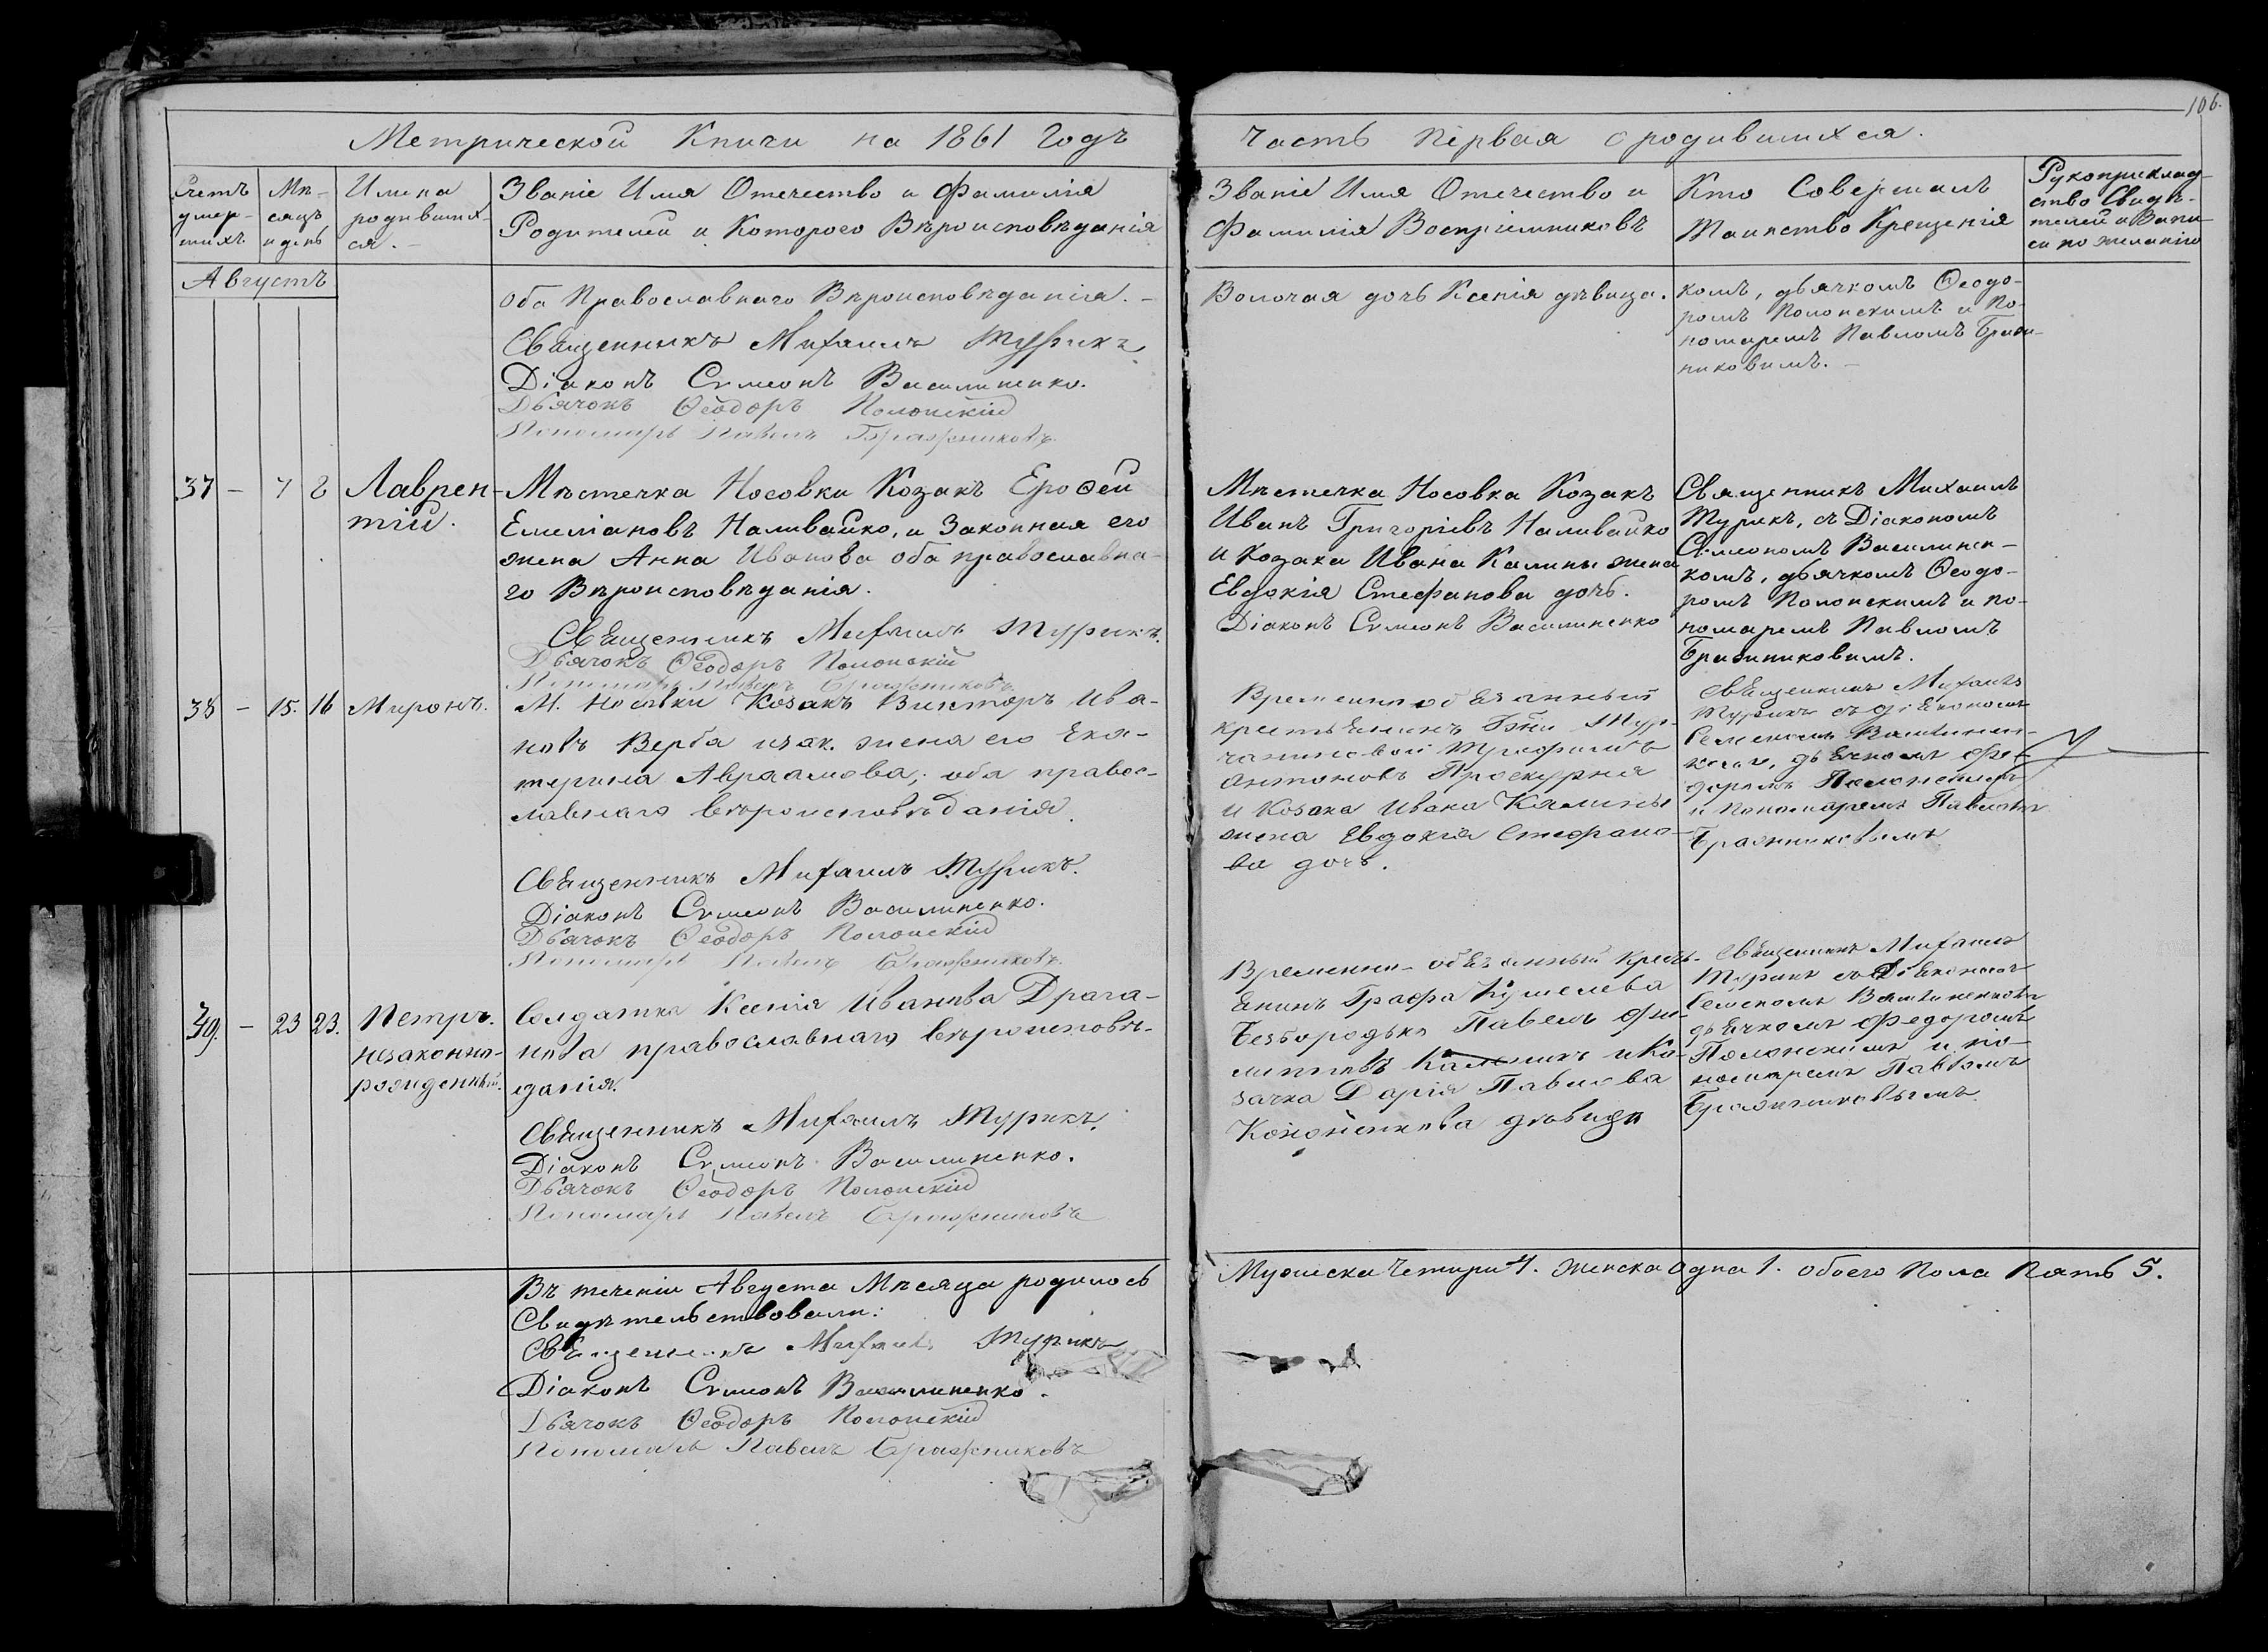 106.
Метрической Книги на 1861 Годъ
Часть Первая о родившихся.
Счетъ умер-шихъ
Мѣ-сяцъ и день
Имена родившихся.
Званіе Имя Отечество и Фамилія
Родителей и Которого Вѣроисповѣданія
Званіе Имя Отечество и
Фамилія Воспріемниковъ
Кто Совершалъ
Таинство Крещенія
Рукоприклад-
ство Свидѣ-
телей и Запи-
си по желанію
Августъ
оба Православнаго Вѣроисповѣданія. –
Священникъ Михаилъ Турикъ
Діаконъ Сѵмеонъ Василиненко.
Дьячокъ Ѳеодоръ Полонскій
Пономарь Павелъ Бражниковъ
Волочая дочь Ксенія дѣвица.
комъ, дьячкомъ Ѳеодо-
ромъ Полонскимъ и По-
номаремъ Павломъ Бражни-
никовимъ. –
37 – 7 8
Лаврен-
тій.
Мѣстечка Носовки Козакъ Ероѳей
Емеліановъ Наливайко, и Законная его
жена Анна Иванова оба православна-
го Вѣроисповѣданія.
Священникъ Михаилъ Турикъ.
Дьячокъ Ѳеодоръ Полонскій
Пономарь Павелъ Бражниковъ
Мѣстечка Носовка Козакъ
Иванъ Григоріевъ Наливайко
и Козака Ивана Калины жена
Евдокія Стефанова дочь.
Діаконъ Сѵмеонъ Василиненко
Священникъ Михаилъ
Турикъ, съ Діакономъ
Сѵмеономъ Василинен-
комъ, дьячкомъ Ѳеодо-
ромъ Полонскимъ и по-
номаремъ Павломъ
Бражниковимъ.
38 – 15. 16
Миронъ.
М. Носовки Козакъ Викторъ Ива-
новъ Верба изак. жена его Ека-
терина Авраамова, оба правос-
лавнаго вѣроисповѣданія.
Священникъ Михаилъ Турикъ.
Діаконъ Сѵмеонъ Василиненко.
Дьячокъ Ѳеодоръ Полонскій
Пономарь Павелъ Бражниковъ.
Временнообязанный
крестьянинъ
Трофимъ
Антоновъ Проскурня
и Козака Ивана Калины
жена Евдокія Стефано-
ва дочь.
Священникъ Михаилъ
Турикъ съ діякономъ
Семеномъ Василинен-
комъ, дьячкомъ Фео-
доромъ Полонскимъ
и Пономаремъ Павломъ
Бражниковымъ
39. – 23 23.
Петръ.
незаконно-
рожденный.
Солдатка Ксенія Иванова Драга-
нова православнаго вѣроисповѣ-
данія.
Священникъ Михаилъ Турикъ.
Діаконъ Сѵмеонъ Василиненко.
Дьячокъ Ѳеодоръ Полонскій
Пономарь Павелъ Бражниковъ
Временно-обязанный кресть-
янинъ Графа Кушелева
Безбородька Павелъ Фи-
липповъ и Ко-
зачка Дарія Павлова
дѣвица
Священникъ Михаилъ
Турикъ съ Діякономъ
Семеномъ Василиненкомъ
дьячкомъ Федоромъ
Полонскимъ и по-
номаремъ Павломъ
Бражниковымъ.
Въ теченіи Августа Мѣсяца родилось
Мужеска Четыри 4. Женска Одна 1. обоего Пола Пять 5.
Свидѣтельствовали:
Священникъ Михаилъ Турикъ
Діаконъ Сѵмеонъ Василиненко.
Дьячокъ Ѳеодоръ Полонскій
Пономарь Павелъ Бражниковъ